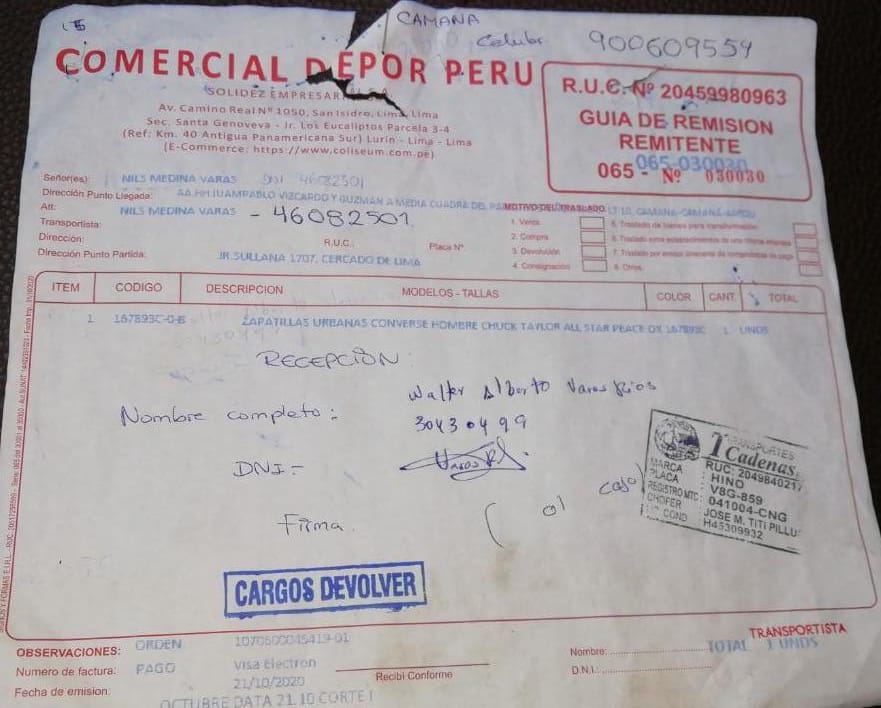 CAMANA
Celular 900609554
COMERCIAL DEPOR PERU
SOLIDEZ EMPRESARIAL S.A.
Av. Camino Real Nº 1050, San Isidro, Lima, Lima
Sec. Santa Genoveva - Jr. Los Eucaliptos Parcela 3-4
(Ref: Km. 40 Antigua Panamericana Sur) Lurin - Lima - Lima
(E-Commerce: https://www.coliseum.com.pe)
R.U.C. Nº 20459980963
GUIA DE REMISION
REMITENTE
065-030030
065 - Nº 030030
Señor(es): NILS MEDINA VARAS DNI 46082501
Dirección Punto Llegada: AA.HH JUAMPABLO VIZCARDO Y GUZMAN A MEDIA CUADRA DEL LT 10, CAMANA-CAMANA-
Att: NILS MEDINA VARAS - 46082501
MOTIVO DEL TRASLADO
Transportista:
Dirección: R.U.C.: Placa Nº
Dirección Punto Partida: JR.SULLANA 1707, CERCADO DE LIMA
1. Venta
2. Compra
3. Devolución
4. Consignación
8. Otros
ITEM CODIGO DESCRIPCION MODELOS - TALLAS COLOR CANT. TOTAL
1 167893C-0-B ZAPATILLAS URBANAS CONVERSE HOMBRE CHUCK TAYLOR ALL STAR PEACE OX 167893C 1 UNDS
RECEPCIÓN
Nombre completo: Walter Alberto Varas Rios
30430499
DNI:-
Firma.
(al cajo)
TRANSPORTES
Cadenas
RUC: 2049840217
MARCA : HINO
PLACA : V8G-859
REGISTRO MTC : 041004-CNG
CHOFER : JOSE M. TITI PILLU
COND : H45309932
CARGOS DEVOLVER
OBSERVACIONES: ORDEN 1070500045419-01
Numero de factura: PAGO Visa Electron
Fecha de emision: 21/10/2020
Recibí Conforme
OCTUBRE DATA 21.10 CORTE I
TRANSPORTISTA
Nombre: TOTAL 1 UNDS
D.N.I.: